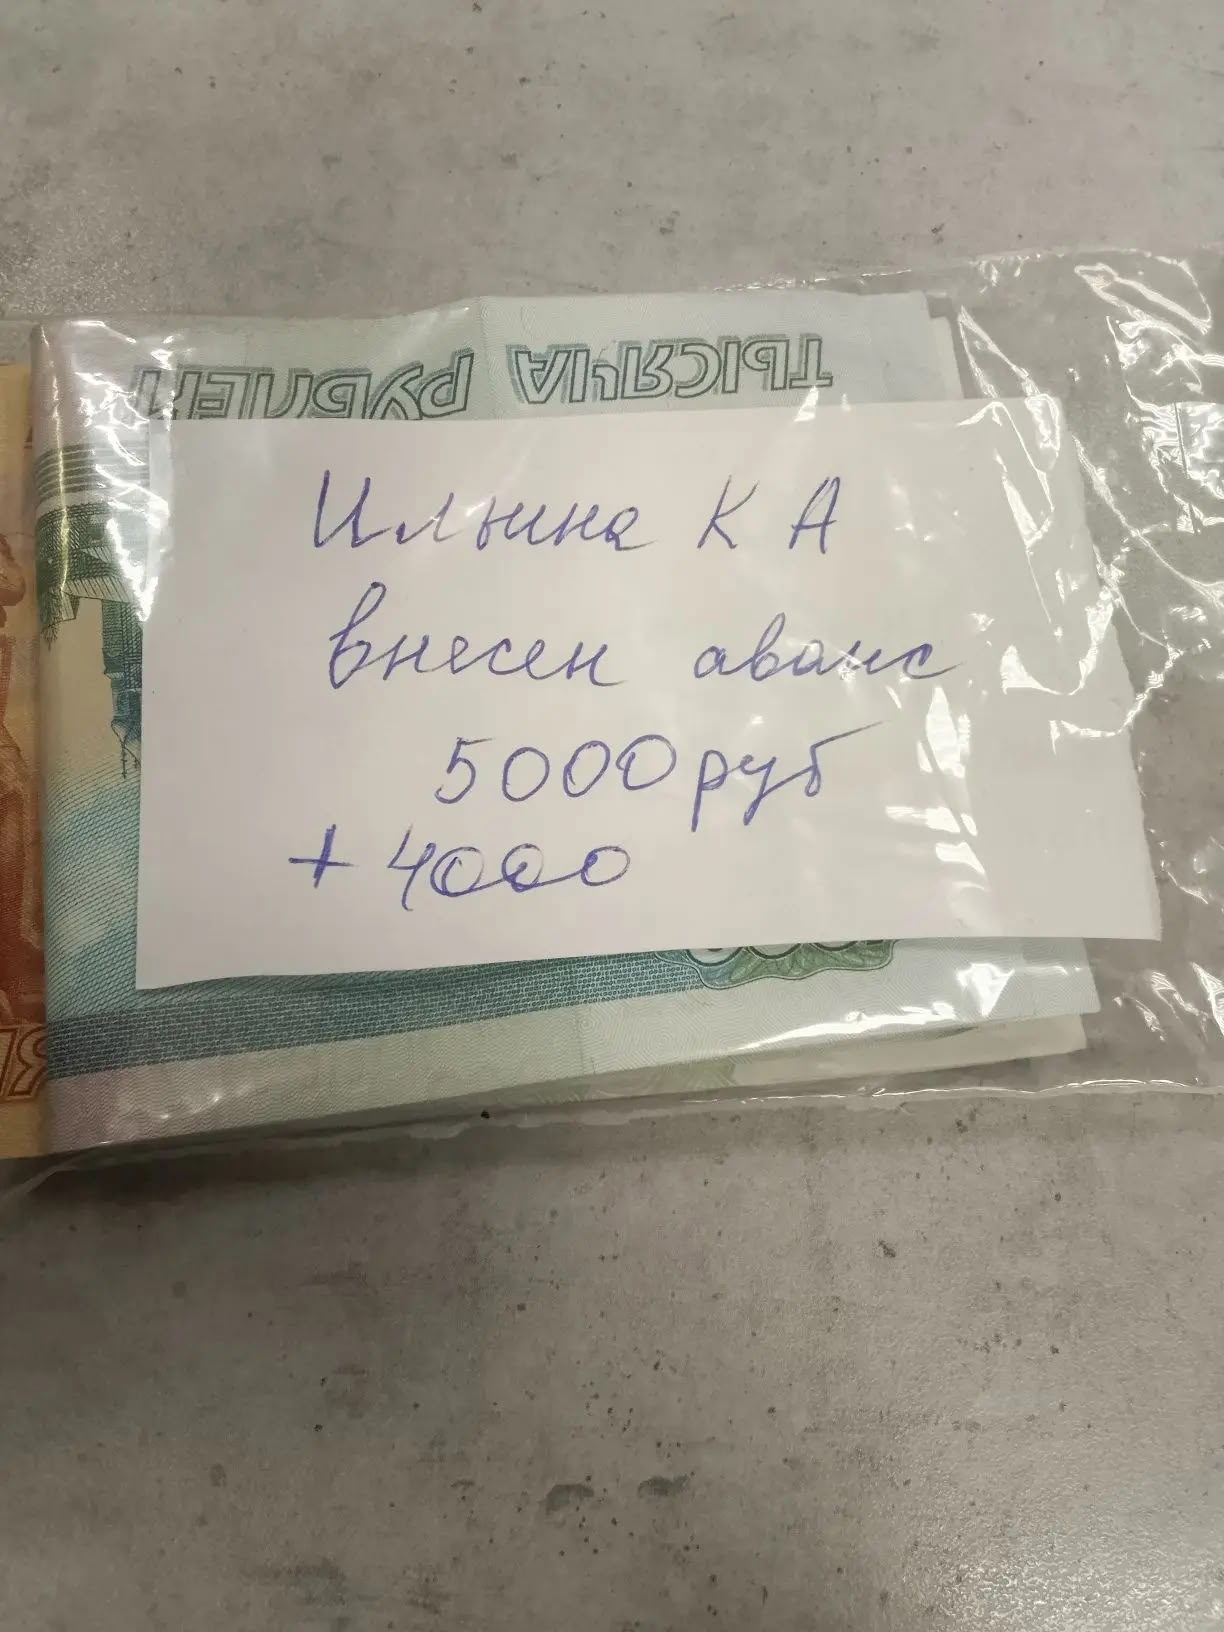 ТЫСЯЧА РУБЛЕЙ
Ильина К А
внесен аванс
5000 руб
+ 4000